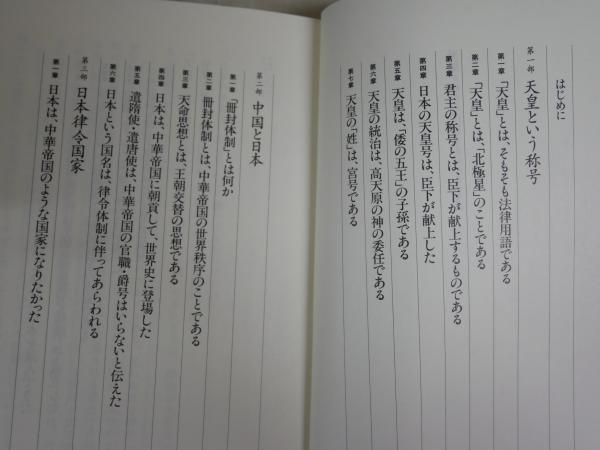 はじめに
第一部 天皇という称号
第一章 「天皇」とは、そもそも法律用語である
第二章 「天皇」とは、「北極星」のことである
第三章 君主の称号とは、臣下が献上するものである
第四章 日本の天皇号は、臣下が献上した
第五章 天皇は、「倭の五王」の子孫である
第六章 天皇の統治は、高天原の神の委任である
第七章 天皇の「姓」は、宮号である
第二部 中国と日本
第一章 「冊封体制」とは何か
第二章 冊封体制とは、中華帝国の世界秩序のことである
第三章 天命思想とは、王朝交替の思想である
第四章 日本は、中華帝国に朝貢して、世界史に登場した
第五章 遣隋使・遣唐使は、中華帝国の官職・爵号はいらないと伝えた
第六章 日本という国名は、律令体制に伴ってあらわれる
第三部 日本律令国家
第一章 日本は、中華帝国のような国家になりたかった